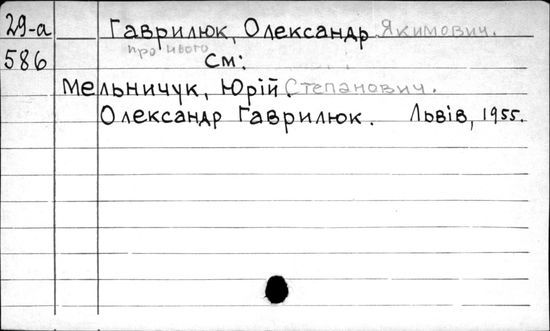 29-а Гаврилюк, Олександр Якимович.
586 про нього См:
Мельничук, Юрій Степанович.
Олександр Гаврилюк. Львів, 1955.